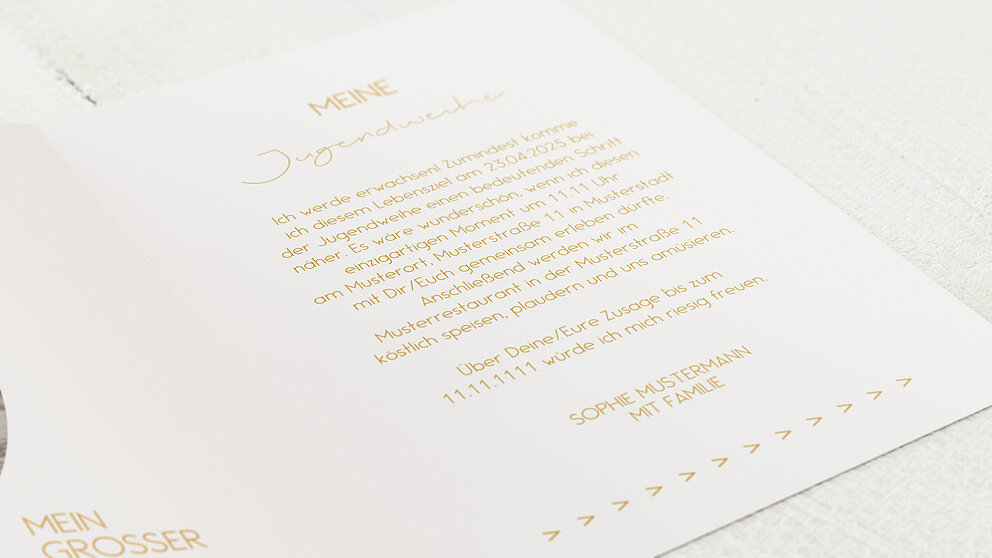 MEINE
Jugendweihe
Ich werde erwachsen! Zumindest komme
ich diesem Lebensziel am 23.04.2025 bei
der Jugendweihe einen bedeutenden Schritt
näher. Es wäre wunderschön, wenn ich diesen
einzigartigen Moment um 11:11 Uhr
am Musterort, Musterstraße 11 in Musterstadt
mit Dir/Euch gemeinsam erleben dürfte.
Anschließend werden wir im
Musterrestaurant in der Musterstraße 11
köstlich speisen, plaudern und uns amüsieren.
Über Deine/Eure Zusage bis zum
11.11.1111 würde ich mich riesig freuen.
SOPHIE MUSTERMANN
MIT FAMILIE
> > > > > > > > > > >
MEIN
GROSSER